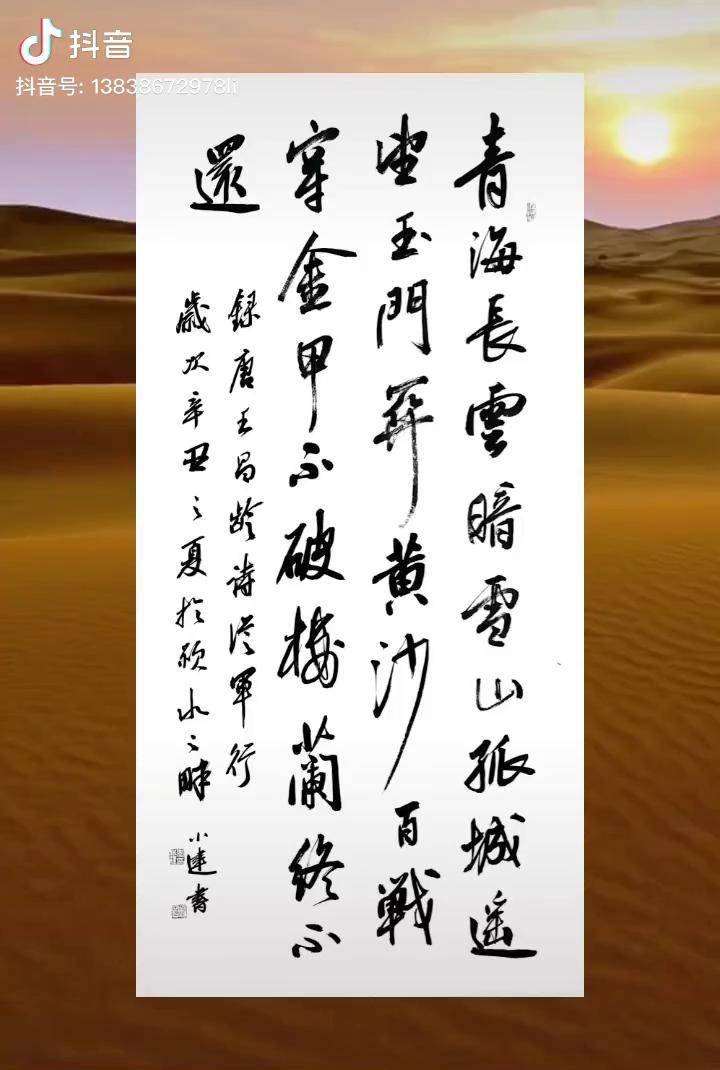 抖音
抖音号: 13838672978li
青海長雲暗雪山孤城遥
望玉門關黄沙百戰
穿金甲不破楼蘭终不
還
録唐王昌龄诗從軍行
歲次辛丑之夏於颍水之畔
小 書